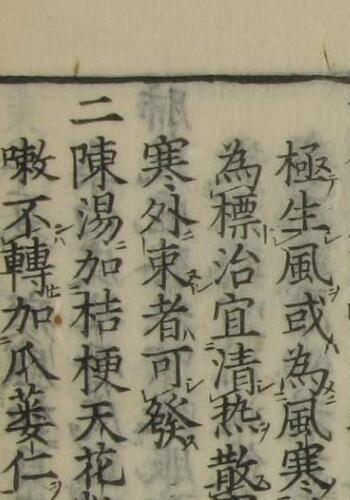 極生風或為風寒
為標治宜清热散
寒外束者可發
二陳湯加桔梗天花
嗽不轉加瓜蔞仁